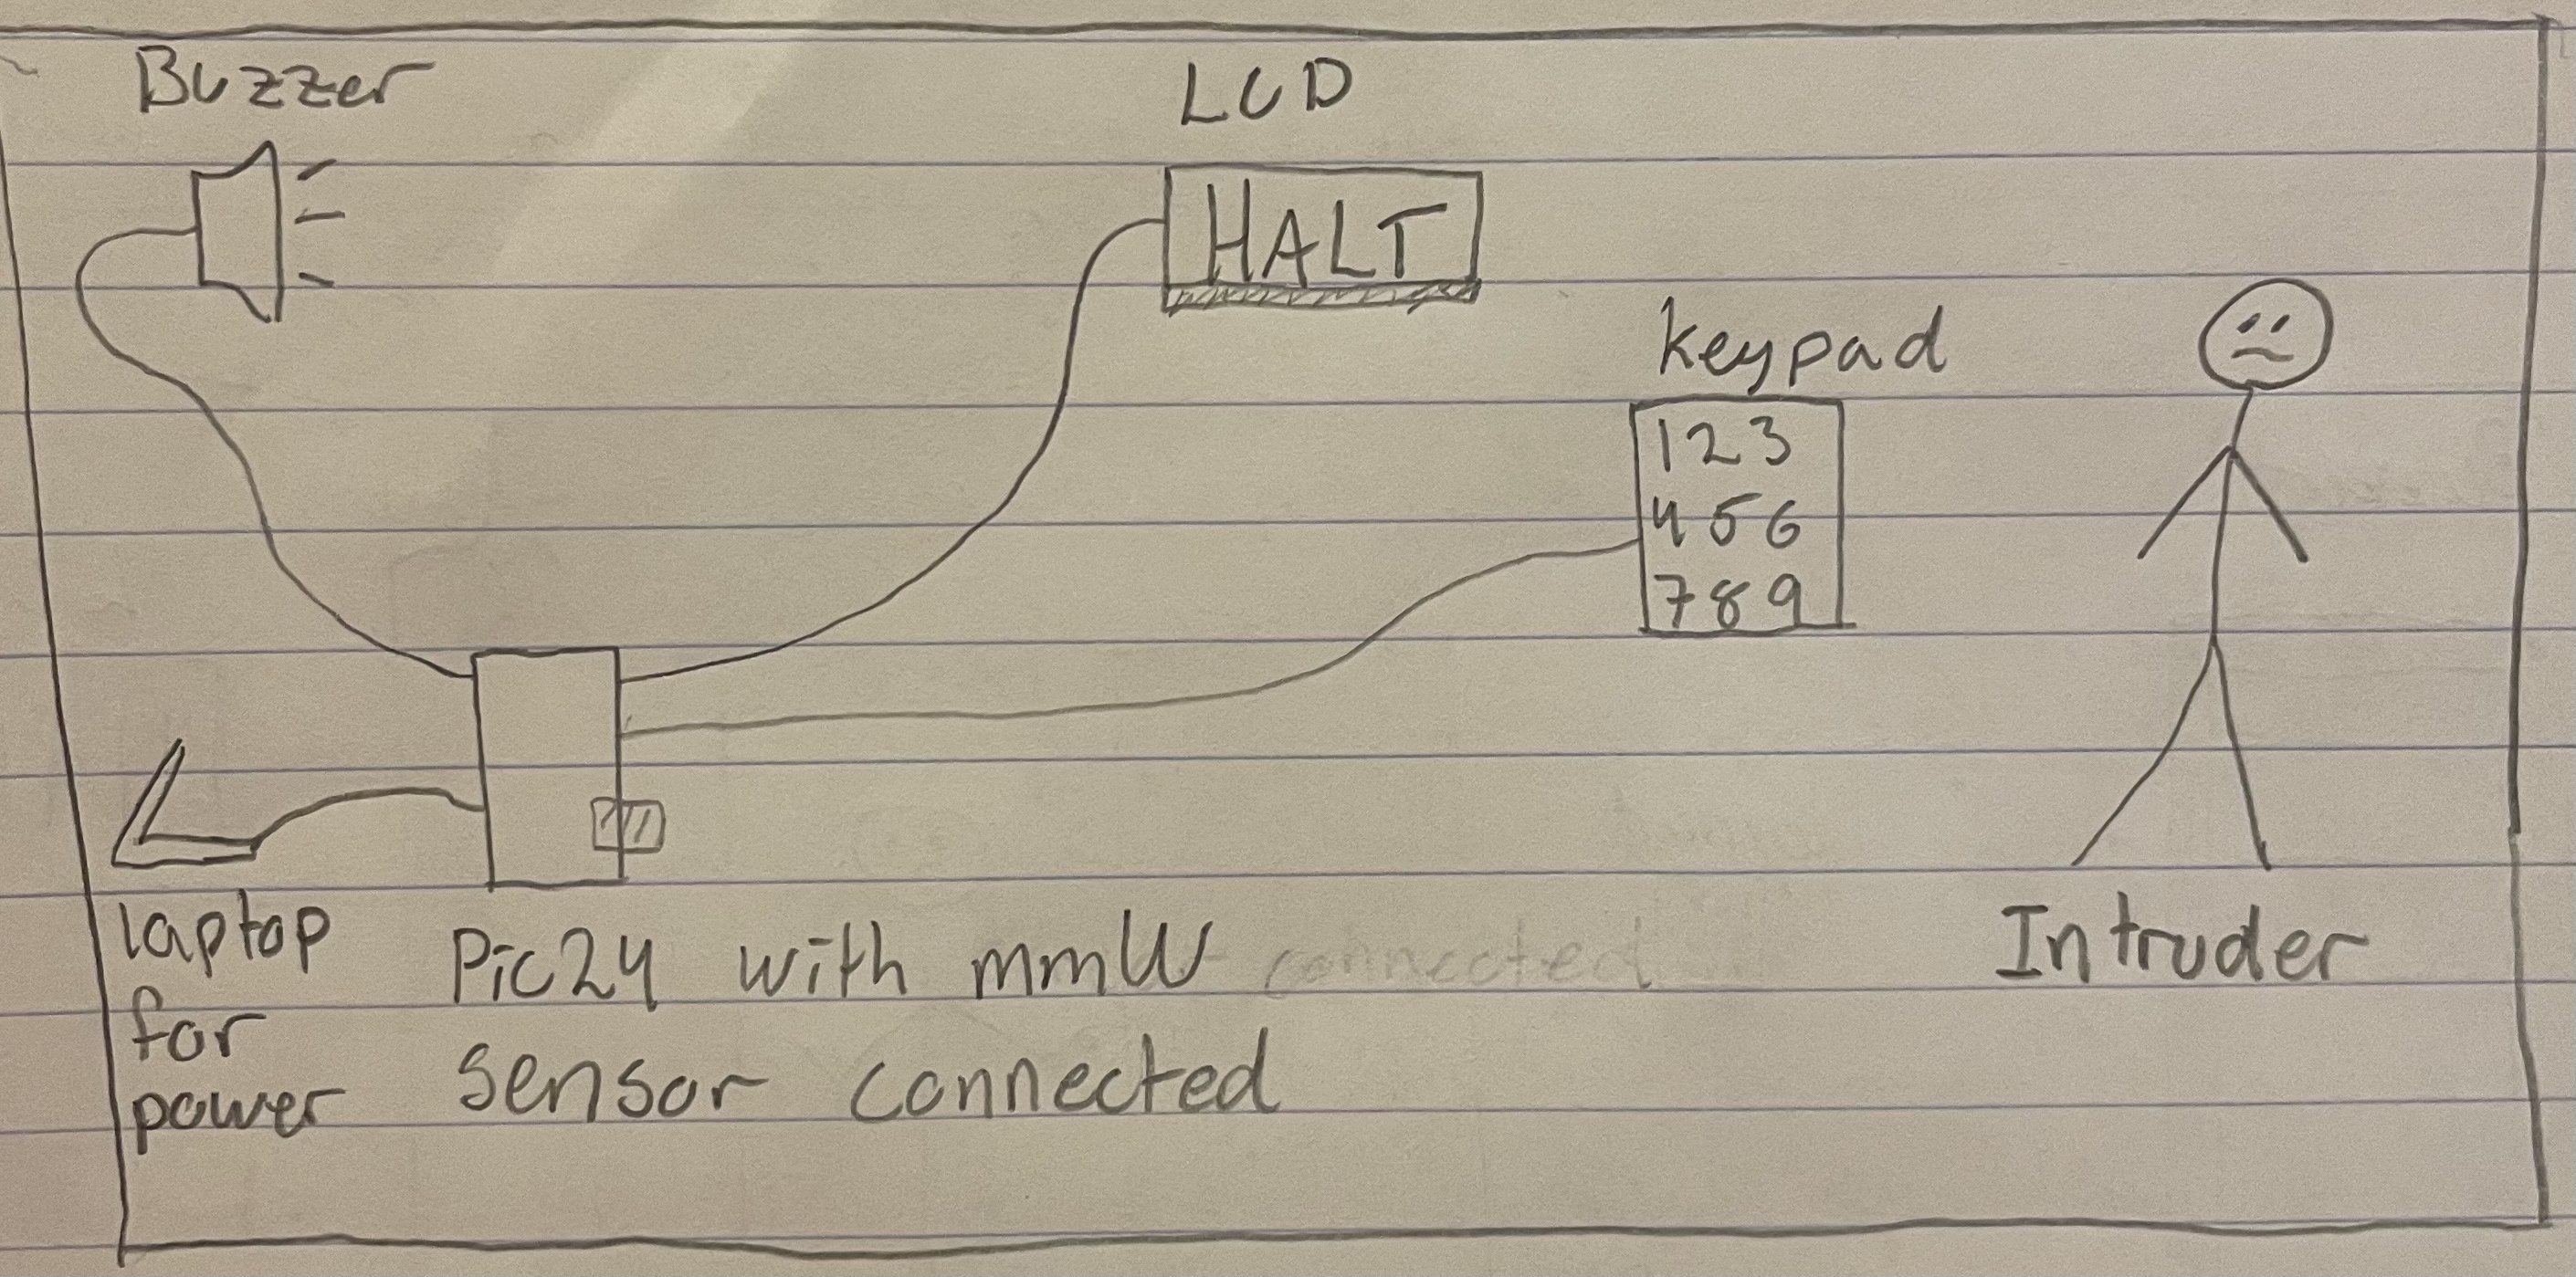 Buzzer
LCD
HALT
keypad
1 2 3
4 5 6
7 8 9
laptop
for
power
Pic24 with mmW
connected
sensor connected
Intruder